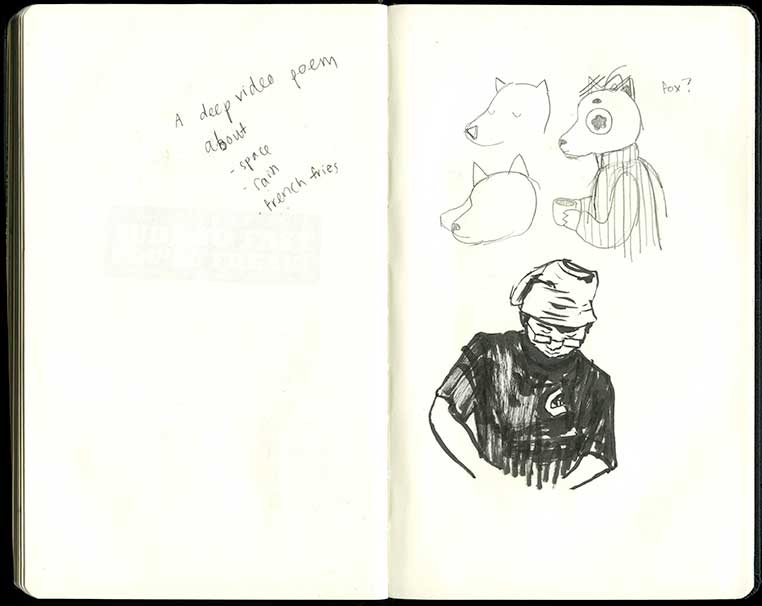 A deep video poem
about
- space
- rain
- french fries
Fox?